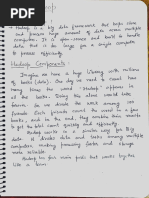 Hadoop is a big data framework that helps store
and process large amount of data across multiple
computers. It is open-source and built to handle
data that is too large for a single computer
to process efficiently.
Hadoop Components :
Imagine we have a huge library with millions
of books (data). One day we need to count how
many times the word "Hadoop" appears in
all the books. Doing this alone would take
forever. So we divide the work among our
friends. Each friend counts the word in a few
books, and in the end, they combine their results
to get the total count quickly and efficiently.
Hadoop works in a similar way for Big
data. It divides data and tasks among multiple
computers, making processing faster and
manageable.
Hadoop has four main parts that work together
like a team